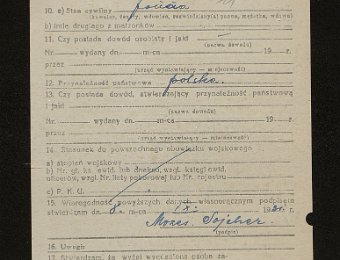 10. a) Stan cywilny
(kawaler, żonaty, wdowiec, rozwiedziony) (a) panna, mężatka, wdowa)
b) imię drugiego z małżonków
11. Czy posiada dowód osobisty i jaki
(nazwa dowodu)
Nr. wydany dn. m-ca 19 r.
przez
(urząd wystawiający — miejscowość)
12. Przynależność państwowa polska
13. Czy posiada dowód, stwierdzający przynależność państwową
i jaki
(nazwa dowodu)
Nr. wydany dn. m-ca 19 r.
przez
(urząd wystawiający — miejscowość)
14. Stosunek do powszechnego obowiązku wojskowego
a) stopień wojskowy
b) Nr. gł. ks. ewid. lub dziekan. względ. księgi ewid.
oficerów, wzgl. Nr. listy poborowej lub Nr. rejestru
c) P. K. U.
15. Wiarogodność powyższych danych własnoręcznym podpisem
stwierdzam dn. 8. m-ca IX. 193 r.
Mozes Sojcher
(podpis)
16. Uwagi
17. Stwierdzam, że wyżej wymieniona osoba za-